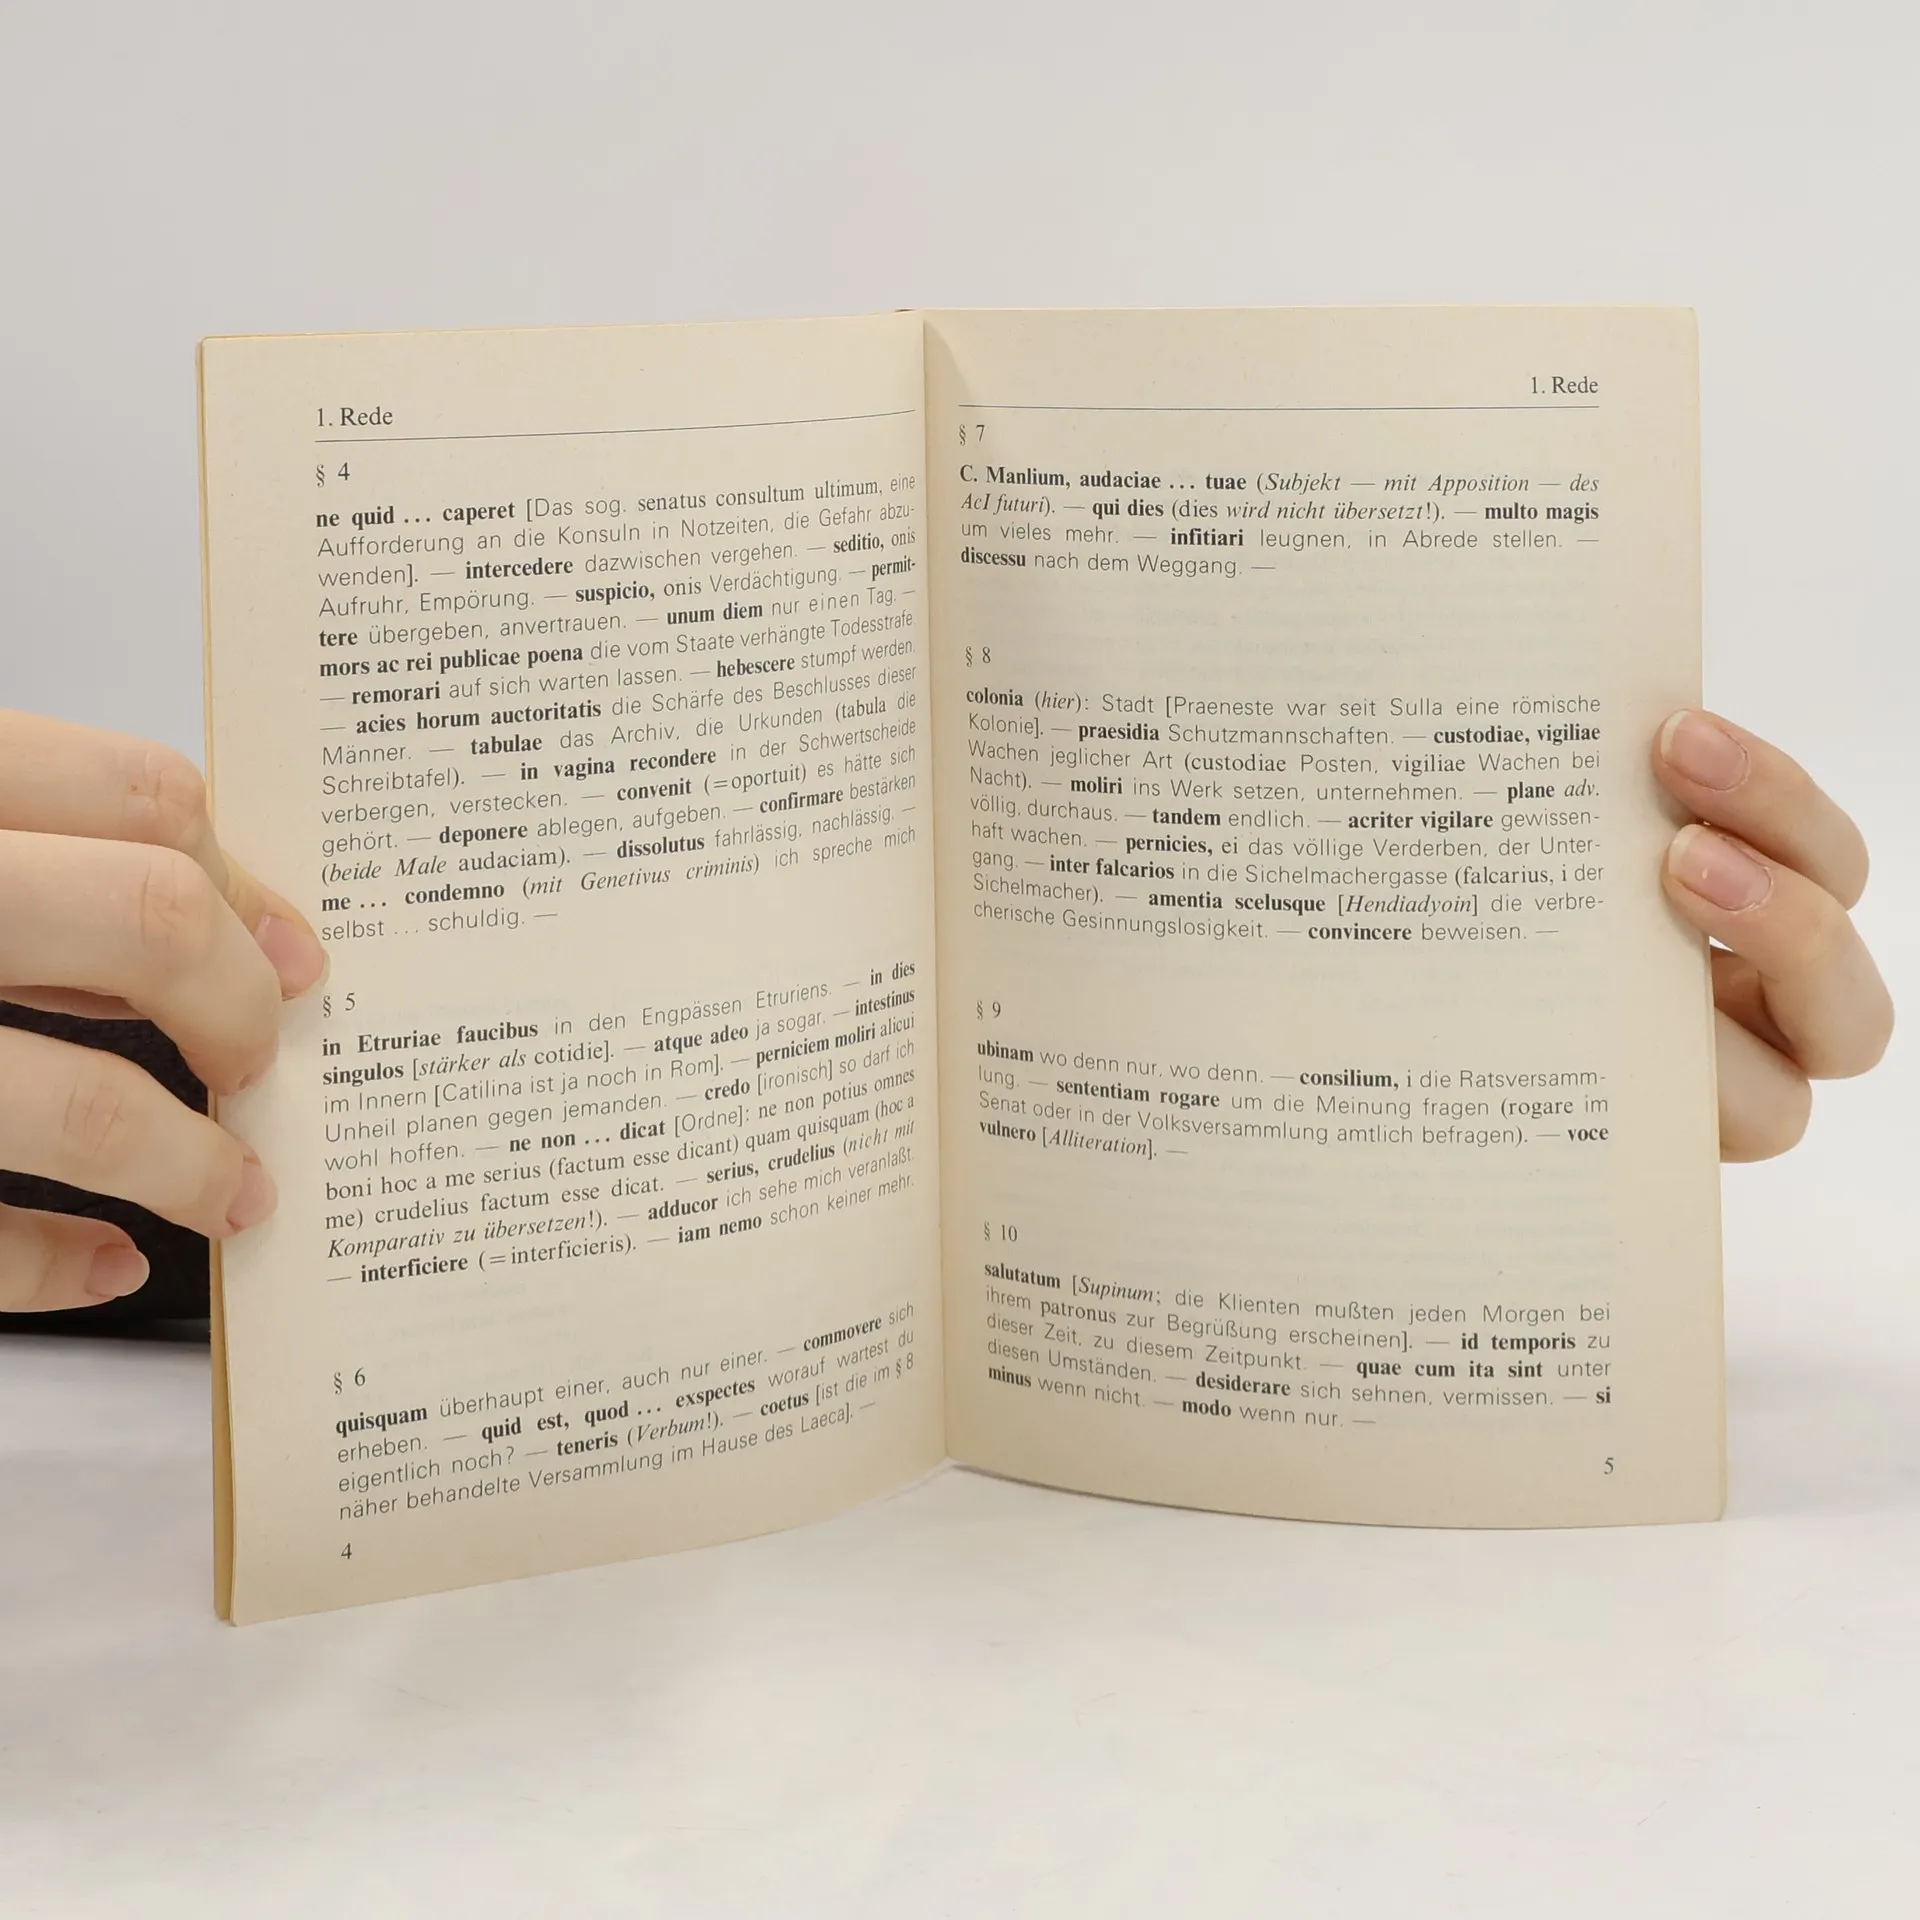 1. Rede
§ 4
ne quid ... caperet [Das sog. senatus consultum ultimum, eine
Aufforderung an die Konsuln in Notzeiten, die Gefahr abzu-
wenden]. — intercedere dazwischen vergehen. — seditio, onis
Aufruhr, Empörung. — suspicio, onis Verdächtigung. — permit-
tere übergeben, anvertrauen. — unum diem nur einen Tag. —
mors ac rei publicae poena die vom Staate verhängte Todesstrafe
— remorari auf sich warten lassen. — hebescere stumpf werden.
— acies horum auctoritatis die Schärfe des Beschlusses dieser
Männer. — tabulae das Archiv, die Urkunden (tabula die
Schreibtafel). — in vagina recondere in der Schwertscheide
verbergen, verstecken. — convenit (=oportuit) es hätte sich
gehört. — deponere ablegen, aufgeben. — confirmare bestärken
(beide Male audaciam). — dissolutus fahrlässig, nachlässig. —
me ... condemno (mit Genetivus criminis) ich spreche mich
selbst ... schuldig. —
§ 5
in Etruriae faucibus in den Engpässen Etruriens. — in dies
singulos [stärker als cotidie]. — atque adeo ja sogar. — intestinus
im Innern [Catilina ist ja noch in Rom]. — perniciem moliri alicui
Unheil planen gegen jemanden. — credo [ironisch] so darf ich
wohl hoffen. — ne non ... dicat [Ordne]: ne non potius omnes
boni hoc a me serius (factum esse dicant) quam quisquam (hoc a
me) crudelius factum esse dicat. — serius, crudelius (nicht mit
Komparativ zu übersetzen!). — adducor ich sehe mich veranlaßt.
— interficiere (=interficieris). — iam nemo schon keiner mehr.
§ 6
quisquam überhaupt einer, auch nur einer. — commovere sich
erheben. — quid est, quod ... exspectes worauf wartest du
eigentlich noch? — teneris (Verbum!). — coetus [ist die im § 8
näher behandelte Versammlung im Hause des Laeca]. —
4
1. Rede
§ 7
C. Manlium, audaciae ... tuae (Subjekt — mit Apposition — des
AcI futuri). — qui dies (dies wird nicht übersetzt!). — multo magis
um vieles mehr. — infitiari leugnen, in Abrede stellen. —
discessu nach dem Weggang. —
§ 8
colonia (hier): Stadt [Praeneste war seit Sulla eine römische
Kolonie]. — praesidia Schutzmannschaften. — custodiae, vigiliae
Wachen jeglicher Art (custodiae Posten, vigiliae Wachen bei
Nacht). — moliri ins Werk setzen, unternehmen. — plane adv.
völlig, durchaus. — tandem endlich. — acriter vigilare gewissen-
haft wachen. — pernicies, ei das völlige Verderben, der Unter-
gang. — inter falcarios in die Sichelmachergasse (falcarius, i der
Sichelmacher). — amentia scelusque [Hendiadyoin] die verbre-
cherische Gesinnungslosigkeit. — convincere beweisen. —
§ 9
ubinam wo denn nur, wo denn. — consilium, i die Ratsversamm-
lung. — sententiam rogare um die Meinung fragen (rogare im
Senat oder in der Volksversammlung amtlich befragen). — voce
vulnero [Alliteration]. —
§ 10
salutatum [Supinum; die Klienten mußten jeden Morgen bei
ihrem patronus zur Begrüßung erscheinen]. — id temporis zu
dieser Zeit, zu diesem Zeitpunkt. — quae cum ita sint unter
diesen Umständen. — desiderare sich sehnen, vermissen. — si
minus wenn nicht. — modo wenn nur. —
5